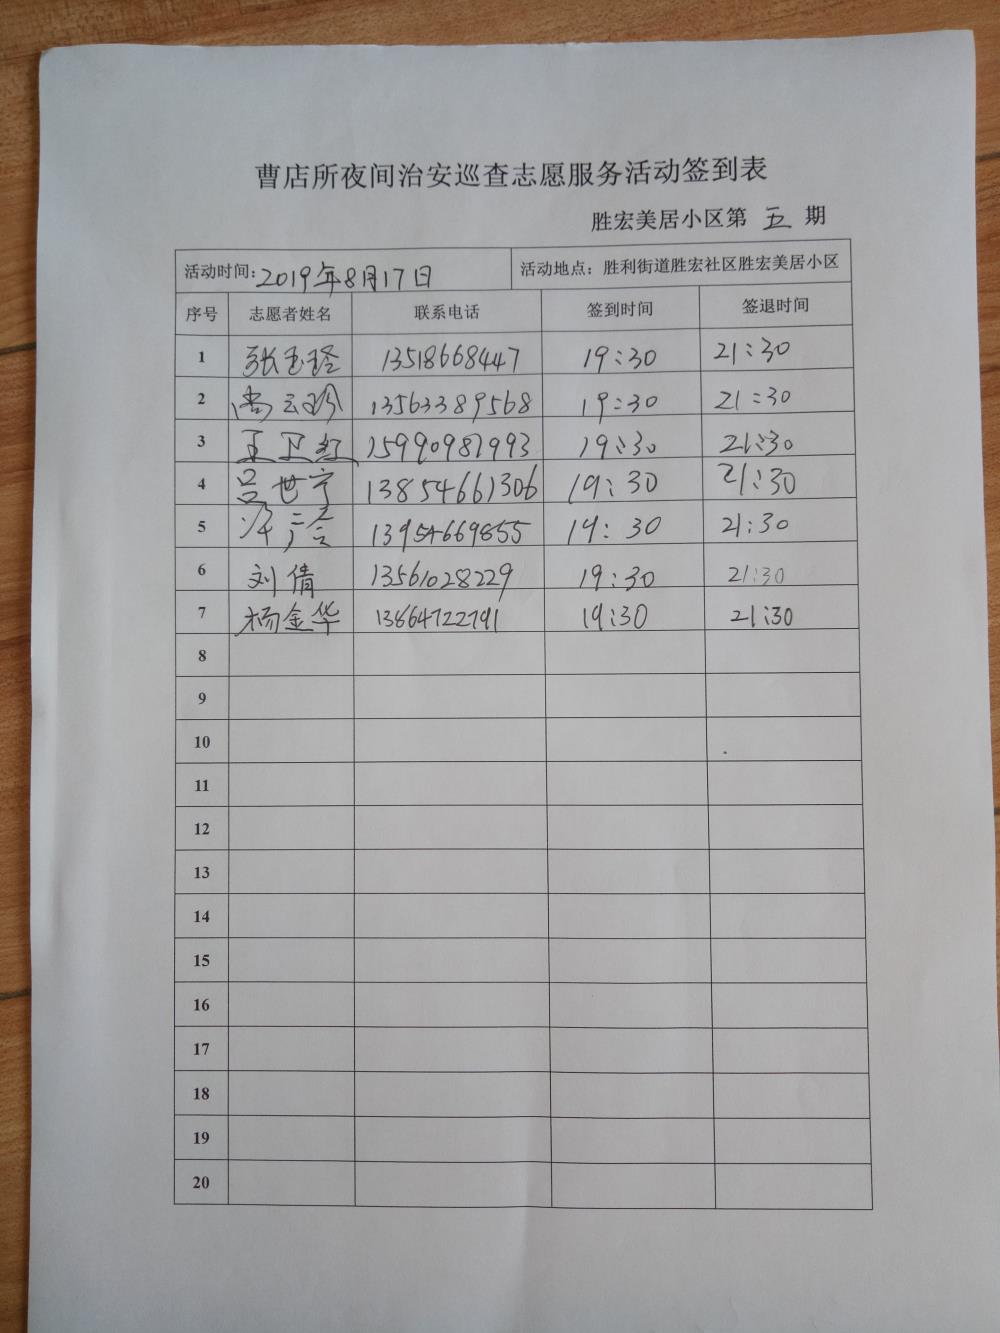 曹店所夜间治安巡查志愿服务活动签到表
胜宏美居小区第 五 期
活动时间：2019年8月17日 活动地点：胜利街道胜宏社区胜宏美居小区
序号 志愿者姓名 联系电话 签到时间 签退时间
1 张玉 13518668447 19:30 21:30
2 尚云珍 13563389568 19:30 21:30
3 王卫红 15990987993 19:30 21:30
4 吕世宁 13854661306 19:30 21:30
5 13954669855 19:30 21:30
6 刘倩 13561028229 19:30 21:30
7 杨金华 13864722791 19:30 21:30
8
9
10
11
12
13
14
15
16
17
18
19
20